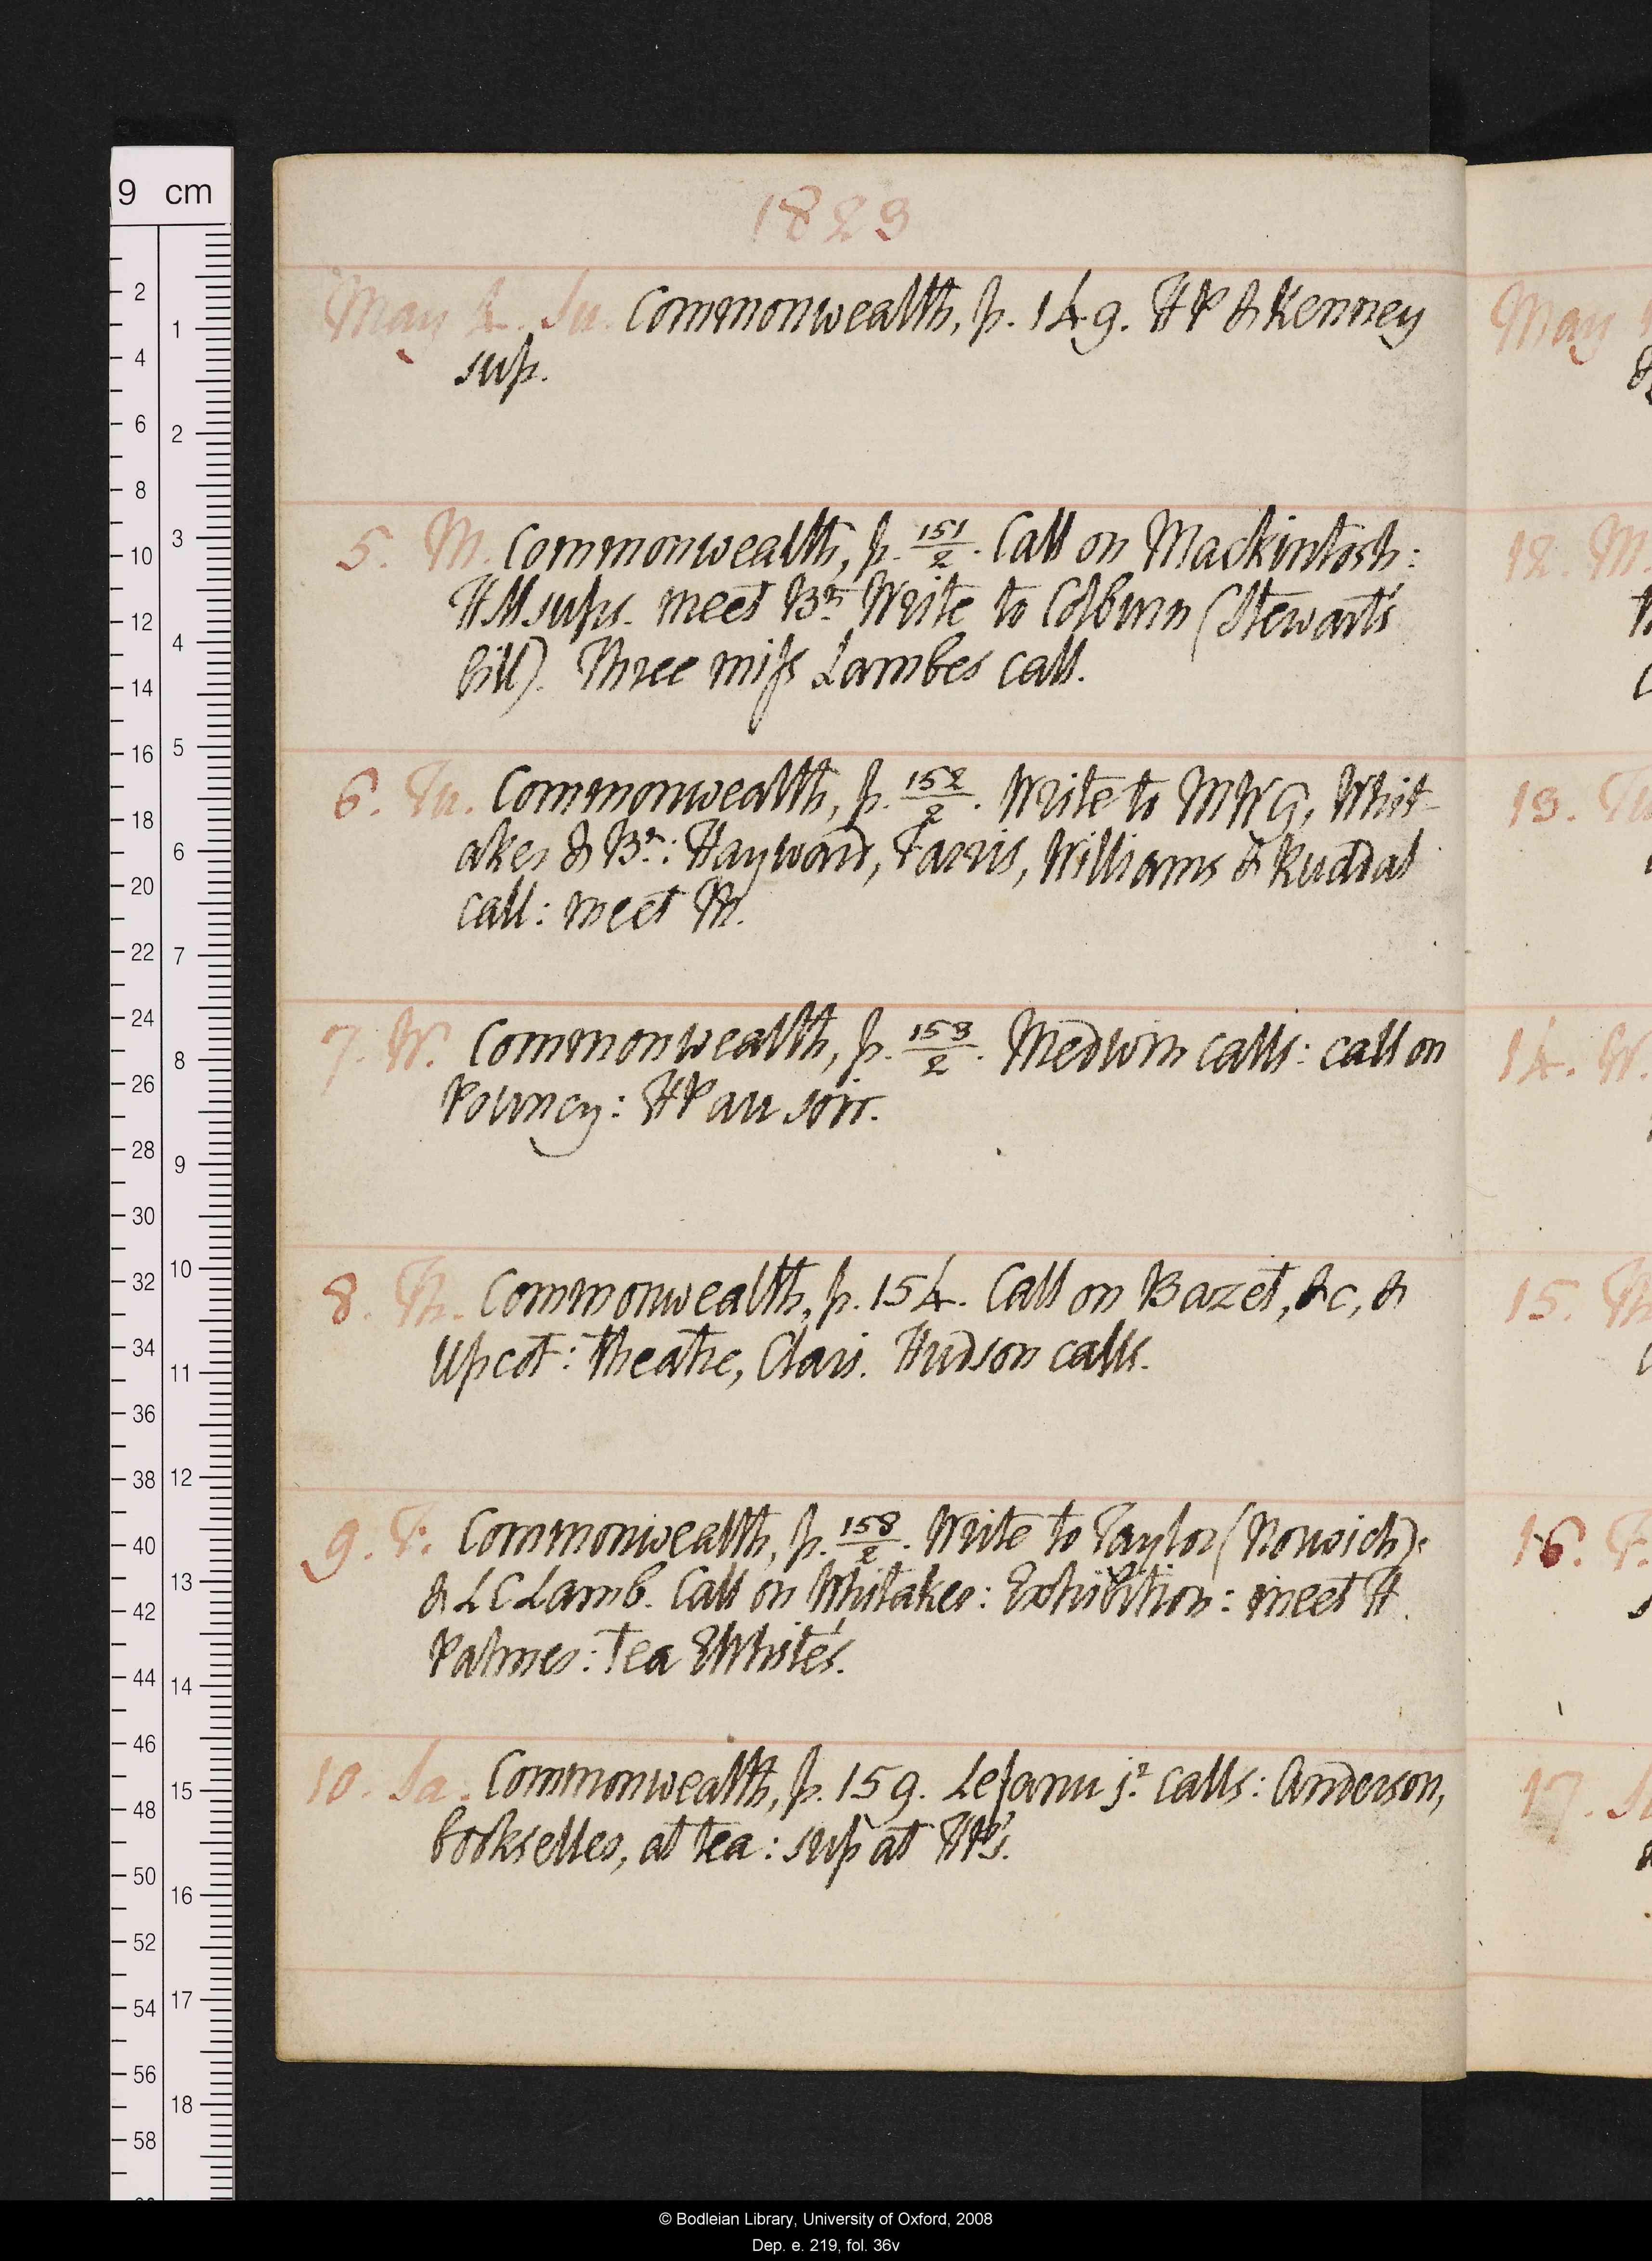 9 cm
2
4
6
8
10
12
14
16
18
20
22
24
26
28
30
32
34
36
38
40
42
44
46
48
50
52
54
56
58
1
2
3
4
5
6
7
8
9
10
11
12
13
14
15
16
17
18
1823
May 4. Su. Commonwealth, p. 149. HP & Kenney
sup.
5. M. Commonwealth, p. 151/2. Call on Mackintosh:
HM sups. meet Bn. Write to Colburn (Stewart's
bill). Three miss Lambes call.
6. Tu. Commonwealth, p. 152/2. Write to MWG, Whit-
aker & Br.: Hayward, Farris, Williams & Ruddal
call: meet M.
7. W. Commonwealth, p. 153/2. Medwin calls: call on
Pouncy: HP au soir.
8. Th. Commonwealth, p. 154. Call on Bazet, &c, &
Upcot: theatre, Clari. Hudson calls.
9. F. Commonwealth, p. 158/2. Write to Taylor (Norwich)
& LC Lamb. Call on Whitaker: Exhibition: meet H
Palmer: tea E White's.
10. Sa. Commonwealth, p. 159. Lefanu jr. calls: Anderson,
bookseller, at tea: sup at HP's.
May
12. M.
13. Tu
14. W.
15. Th
16. F.
17.
© Bodleian Library, University of Oxford, 2008
Dep. e. 219, fol. 36v